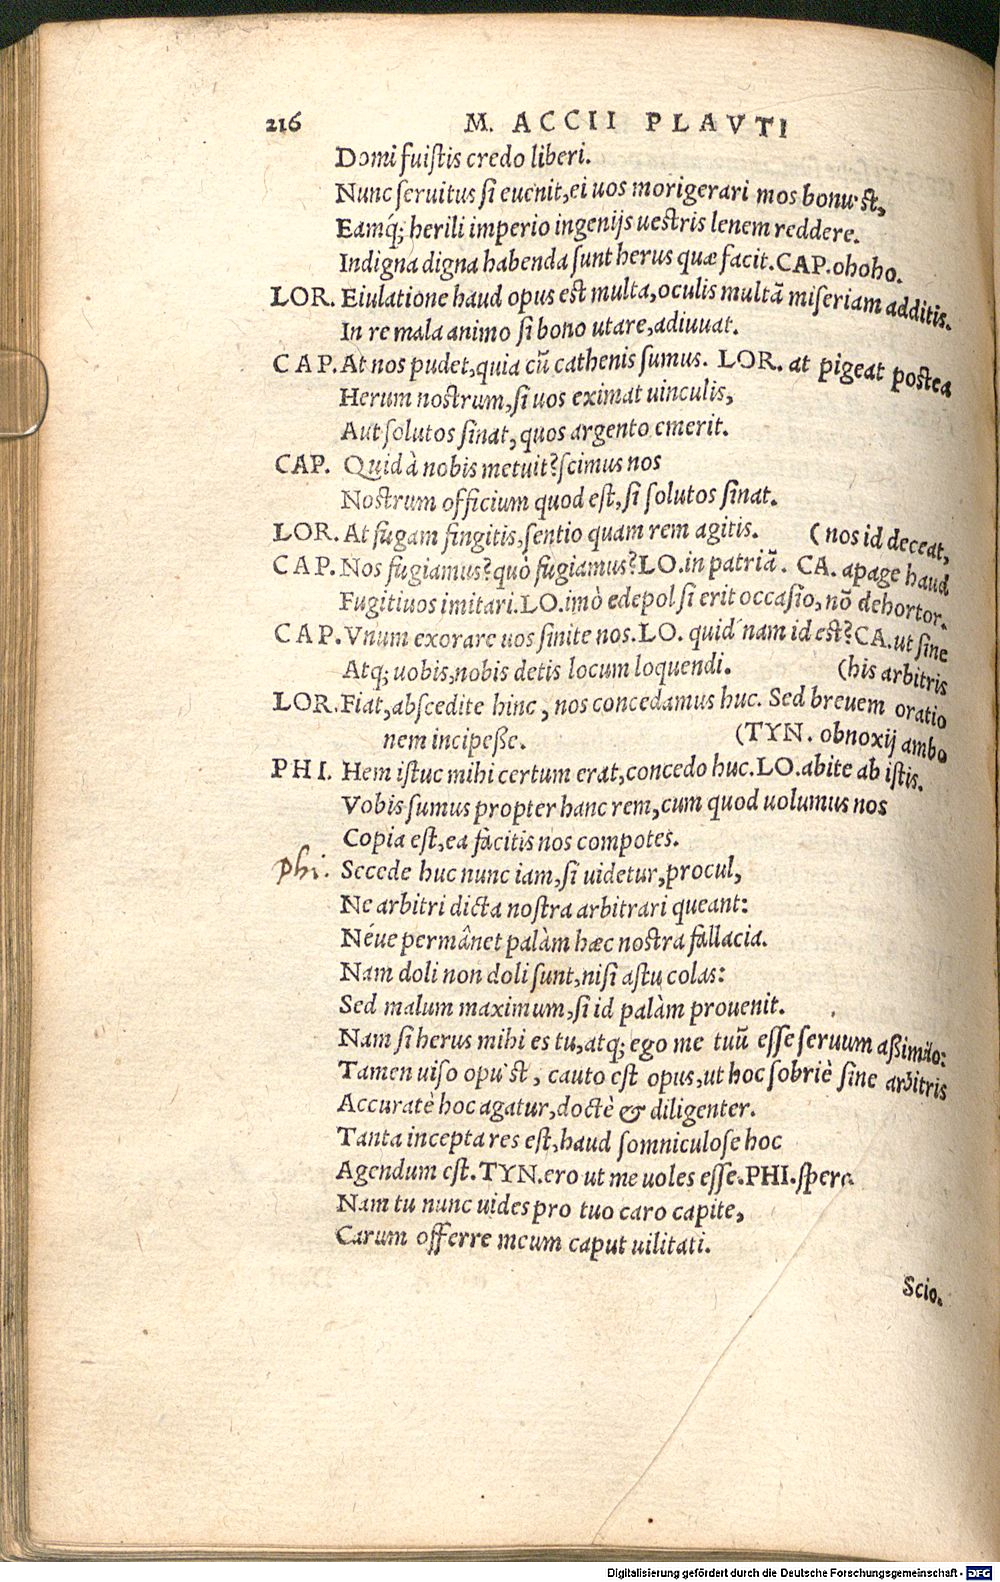 216 M. ACCII PLAVTI
Domi fuistis credo liberi.
Nunc seruitus si euenit, ei uos morigerari mos bonu'st,
Eamq́; herili imperio ingenijs uestris lenem reddere.
Indigna digna habenda sunt herus quæ facit. CAP. ohoho.
LOR. Eiulatione haud opus est multa, oculis multã miseriam additis.
In re mala animo si bono utare, adiuuat.
CAP. At nos pudet, quia cũ cathenis sumus. LOR. at pigeat postea
Herum nostrum, si uos eximat uinculis,
Aut solutos sinat, quos argento emerit.
CAP. Quid à nobis metuit? scimus nos
Nostrum officium quod est, si solutos sinat.
LOR. At fugam fingitis, sentio quam rem agitis. (nos id deceat,
CAP. Nos fugiamus? quò fugiamus? LO. in patriã. CA. apage haud
Fugitiuos imitari. LO. imò edepol si erit occasio, nõ dehortor.
CAP. Vnum exorare uos sinite nos. LO. quid nam id est? CA. ut sine
Atq; uobis, nobis detis locum loquendi. (his arbitris
LOR. Fiat, abscedite hinc, nos concedamus huc. Sed breuem oratio
nem incipeße. (TYN. obnoxij ambo
PHI. Hem istuc mihi certum erat, concedo huc. LO. abite ab istis.
Vobis sumus propter hanc rem, cum quod uolumus nos
Copia est, ea facitis nos compotes.
Phi. Secede huc nunc iam, si uidetur, procul,
Ne arbitri dicta nostra arbitrari queant:
Néue permânet palàm hæc nostra fallacia.
Nam doli non doli sunt, nisi astu colas:
Sed malum maximum, si id palàm prouenit.
Nam si herus mihi es tu, atq; ego me tuũ esse seruum aßimĩlo:
Tamen uiso opu'st, cauto est opus, ut hoc sobriè sine arbitris
Accuratè hoc agatur, doctè & diligenter.
Tanta incepta res est, haud somniculose hoc
Agendum est. TYN. ero ut me uoles esse. PHI. spero
Nam tu nunc uides pro tuo caro capite,
Carum offerre meum caput uilitati.
Scio.
Digitalisierung gefördert durch die Deutsche Forschungsgemeinschaft - DFG